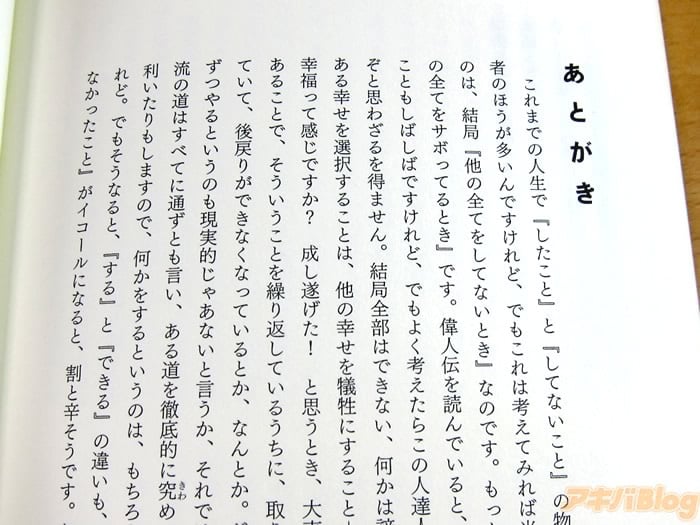 あとがき
これまでの人生で『したこと』と『してないこと』の物
者のほうが多いんですけれど、でもこれは考えてみれば当
のは、結局『他の全てをしてないとき』なのです。もっ
の全てをサボってるとき』です。偉人伝を読んでいると、
こともしばしばですけれど、でもよく考えたらこの人達人
ぞと思わざるを得ません。結局全部はできない、何かは諦
ある幸せを選択することは、他の幸せを犠牲にすること
幸福って感じですか？　成し遂げた！　と思うとき、大事
あることで、そういうことを繰り返しているうちに、取り
ていて、後戻りができなくなっているとか、なんとか。
ずつやるというのも現実的じゃあないと言うか、それで
流の道はすべてに通ずとも言い、ある道を徹底的に究め
利いたりもしますので、何かをするというのは、もちろ
れど。でもそうなると、『する』と『できる』の違いも、
なかったこと』がイコールになると、割と辛そうです。
アキバBlog